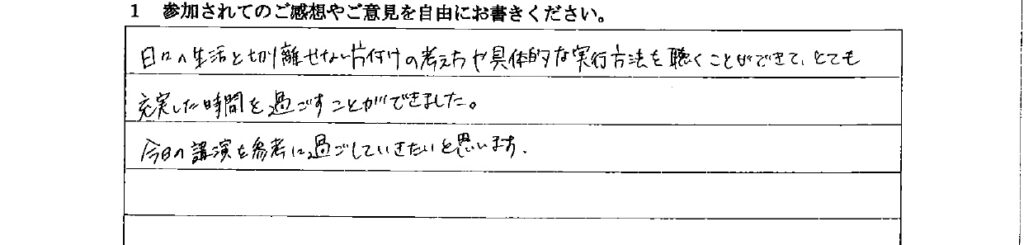 1 参加されてのご感想やご意見を自由にお書きください。
日々の生活と切り離せない片付けの考え方や具体的な実行方法を聴くことができて、とても
充実した時間を過ごすことができました。
今日の講演を参考に過ごしていきたいと思います.